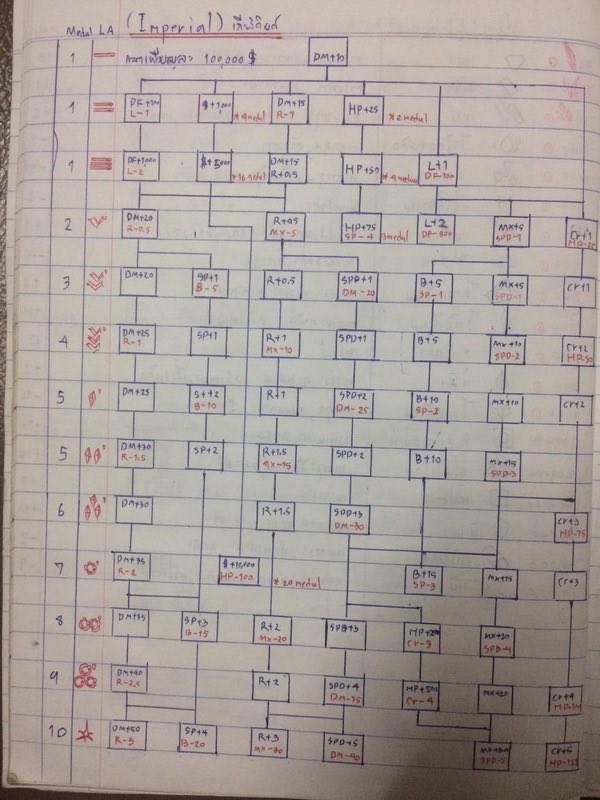 Medal LA (Imperial)
1 100,000 $ DM+10
1 DF+700 $+1,000 DM+15 HP+25
L-1 *4 medal R-1 *2 medal
1 DF+1,000 $+5,000 DM+15 HP+50 L+1
L-2 *16 medal R+0.5 *4 medal DF-100
2 DM+20 R+0.5 HP+75 L+2 MX+5 Cr+1
R-0.5 MX-5 SP-4 3medal DF-300 SPD-1
3 DM+20 SP+1 R+0.5 SPD+1 B+5 MX+5 Cr+1
B-5 DM-20 SP-1 SPD-1
4 DM+25 SP+1 R+1 SPD+1 B+5 MX+10 Cr+2
R-1 MX-10 SPD-2 HP-50
5 DM+25 R+1 SPD+2 B+10 MX+10 Cr+2
B-10 DM-25 SP-2
5 DM+30 SP+2 R+1.5 SPD+2 B+10 MX+15
R-1.5 MX-15 SPD-3
6 DM+30 R+1.5 SPD+3 Cr+3
DM-30 HP-75
7 DM+35 $+10,000 B+15 MX+15 Cr+3
R-2 HP-100 *20 medal SP-3
8 DM+35 SP+3 R+2 SPD+3 MX+20
B-15 MX-20 Cr-3 SPD-4
9 DM+40 R+2 SPD+4 HP+500 MX+20 Cr+4
R-2.5 DM-35 Cr-4
10 DM+50 SP+4 R+3 SPD+5 MX+30 Cr+5
R-3 B-20 MX-30 DM-40 HP-125